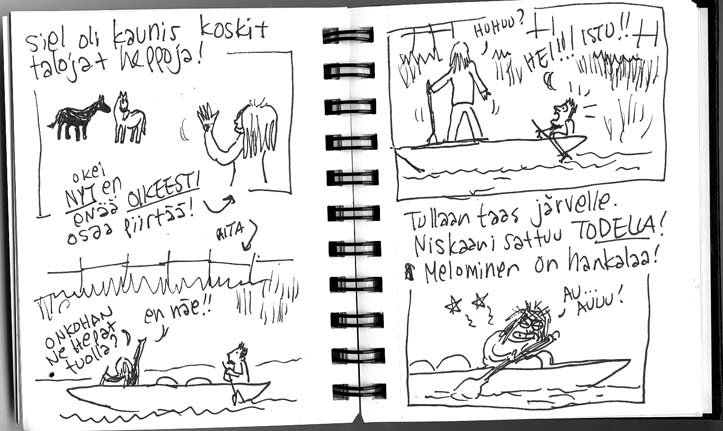 siel oli kaunis koskit
talojat heppoja!
okei
NYT en
enää OIKEESTI
osaa piirtää!
AITA
ONKOHAN
NE HEPAT
tuolla?
en näe!!
HUHUU?
HEI!!! ISTU!!
Tullaan taas järvelle.
Niskaani sattuu TODELLA!
Melominen on hankalaa!
AU...
AUUU!